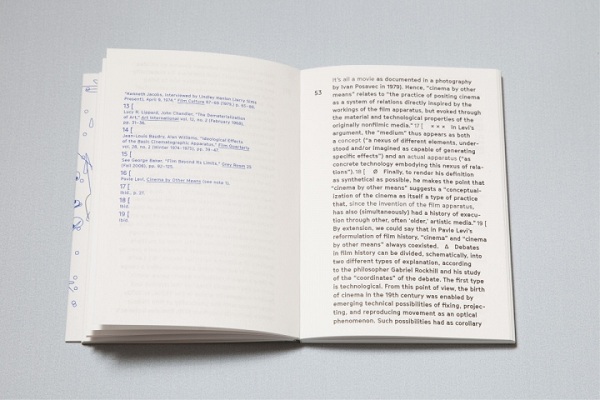 "Kenneth Jacobs, interviewed by Lindley Hanlon [Jerry Sims
Present], April 9, 1974," Film Culture 67–69 (1979) p. 65–86.
13 [
Lucy R. Lippard, John Chandler, "The Dematerialization
of Art," Art International vol. 12, no. 2 (February 1968),
pp. 31–36.
14 [
Jean-Louis Baudry, Alan Williams, "Ideological Effects
of the Basic Cinematographic Apparatus," Film Quarterly
vol. 28, no. 2 (Winter 1974–1975), pp. 39–47.
15 [
See George Baker, "Film Beyond Its Limits," Grey Room 25
(Fall 2006), pp. 92–125.
16 [
Pavle Levi, Cinema by Other Means (see note 1).
17 [
Ibid., p. 27.
18 [
Ibid.
19 [
Ibid.
53
It's all a movie as documented in a photography
by Ivan Posavec in 1979). Hence, "cinema by other
means" relates to "the practice of positing cinema
as a system of relations directly inspired by the
workings of the film apparatus, but evoked through
the material and technological properties of the
originally nonfilmic media." 17 [ × × × In Levi's
argument, the "medium" thus appears as both
a concept ("a nexus of different elements, under-
stood and/or imagined as capable of generating
specific effects") and an actual apparatus ("as
concrete technology embodying this nexus of rela-
tions"). 18 [ Ø Finally, to render his definition
as synthetical as possible, he makes the point that
"cinema by other means" suggests a "conceptual-
ization of the cinema as itself a type of practice
that, since the invention of the film apparatus,
has also (simultaneously) had a history of execu-
tion through other, often 'older,' artistic media." 19 [
By extension, we could say that in Pavle Levi's
reformulation of film history, "cinema" and "cinema
by other means" always coexisted. & Debates
in film history can be divided, schematically, into
two different types of explanation, according
to the philosopher Gabriel Rockhill and his study
of the "coordinates" of the debate. The first type
is technological. From this point of view, the birth
of cinema in the 19th century was enabled by
emerging technical possibilities of fixing, projec-
ting, and reproducing movement as an optical
phenomenon. Such possibilities had as corollary